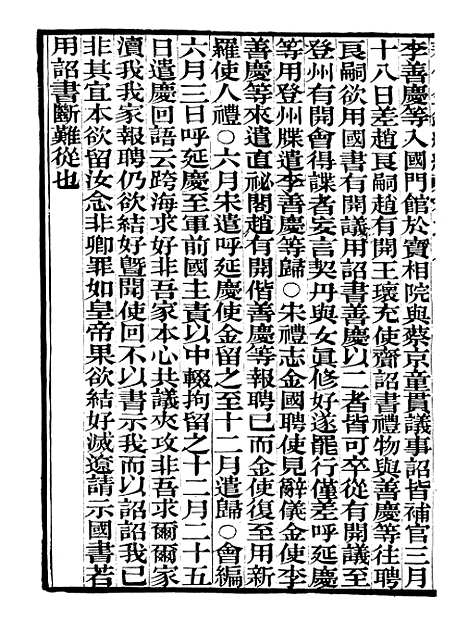 李善慶等入國門館於寶相院與蔡京童貫議事詔皆補官三月
十八日差趙良嗣趙有開王瓌充使齎詔書禮物與善慶等往聘
良嗣欲用國書有開議用詔書善慶以二者皆可卒從有開議至
登州有開會得諜者妄言契丹與女眞修好遂罷行僅差呼延慶
等用登州牒遣李善慶等歸○朱禮志金國聘使見辭儀金使李
善慶等來遣直祕閣趙有開偕善慶等報聘已而金使復至用新
羅使人禮○六月宋遣呼延慶使金留之至十二月遣歸○會編
六月三日呼延慶至軍前國主責以中輟拘留之十二月二十五
日遣慶回語云跨海求好非吾家本心共議夾攻非吾求爾爾家
瀆我我家報聘仍欲結好曁開使回不以書示我而以詔詔我已
非其宜本欲留汝念非卿罪如皇帝果欲結好滅遼請示國書若
用詔書斷難從也